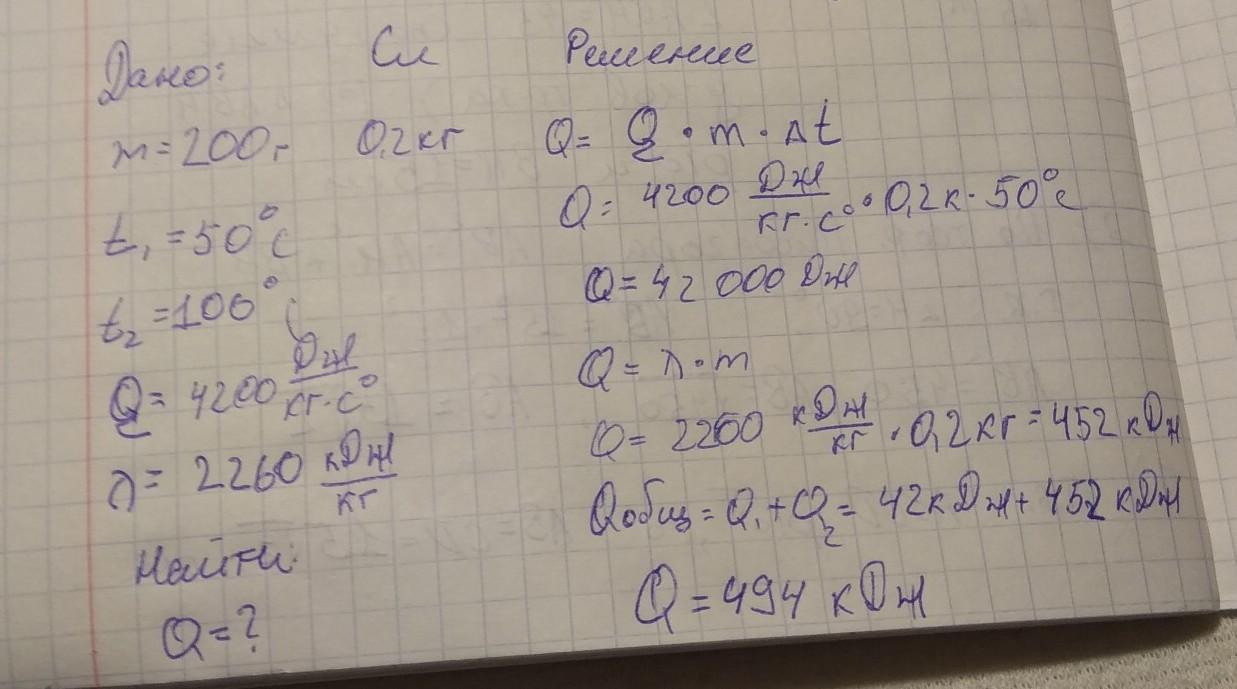 Дано:
m = 200 г
t₁ = 50°C
t₂ = 100°C
Q = 4200 Дж/кг·C°
λ = 2260 кДж/кг
Найти:
Q = ?
Си
0,2 кг
Решение
Q = Q · m · Δt
Q = 4200 Дж/кг·C° · 0,2 к · 50°C
Q = 42 000 Дж
Q = λ · m
Q = 2260 кДж/кг · 0,2 кг = 452 кДж
Qобщ = Q₁ + Q₂ = 42 кДж + 452 кДж
Q = 494 кДж